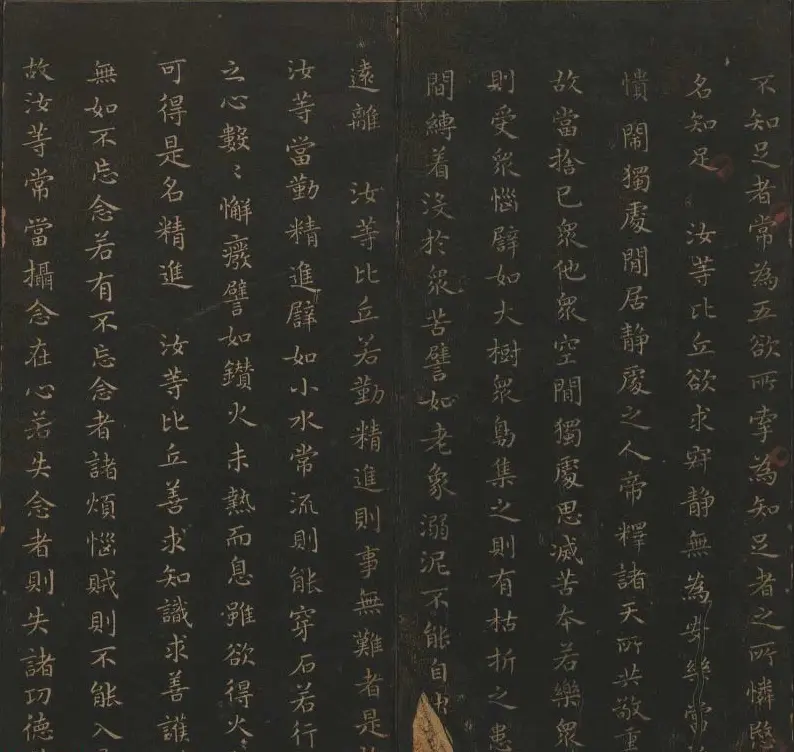 不知足者常為五欲所牽為知足者之所憐愍
名知足　汝等比丘欲求寂靜無為安樂當
憒閙獨處閒居靜處之人帝釋諸天所共敬重
故當捨己衆他衆空閒獨處思滅苦本若樂衆
則受衆惱譬如大樹衆鳥集之則有枯折之患
間縛着沒於衆苦譬如老象溺泥不能自出
遠離　汝等比丘若勤精進則事無難者是
汝等當勤精進譬如小水常流則能穿石若行
之心數〻懈癈譬如鑽火未熱而息雖欲得火
可得是名精進　汝等比丘善求知識求善護
無如不忘念若有不忘念者諸煩惱賊則不能入
故汝等常當攝念在心若失念者則失諸功德